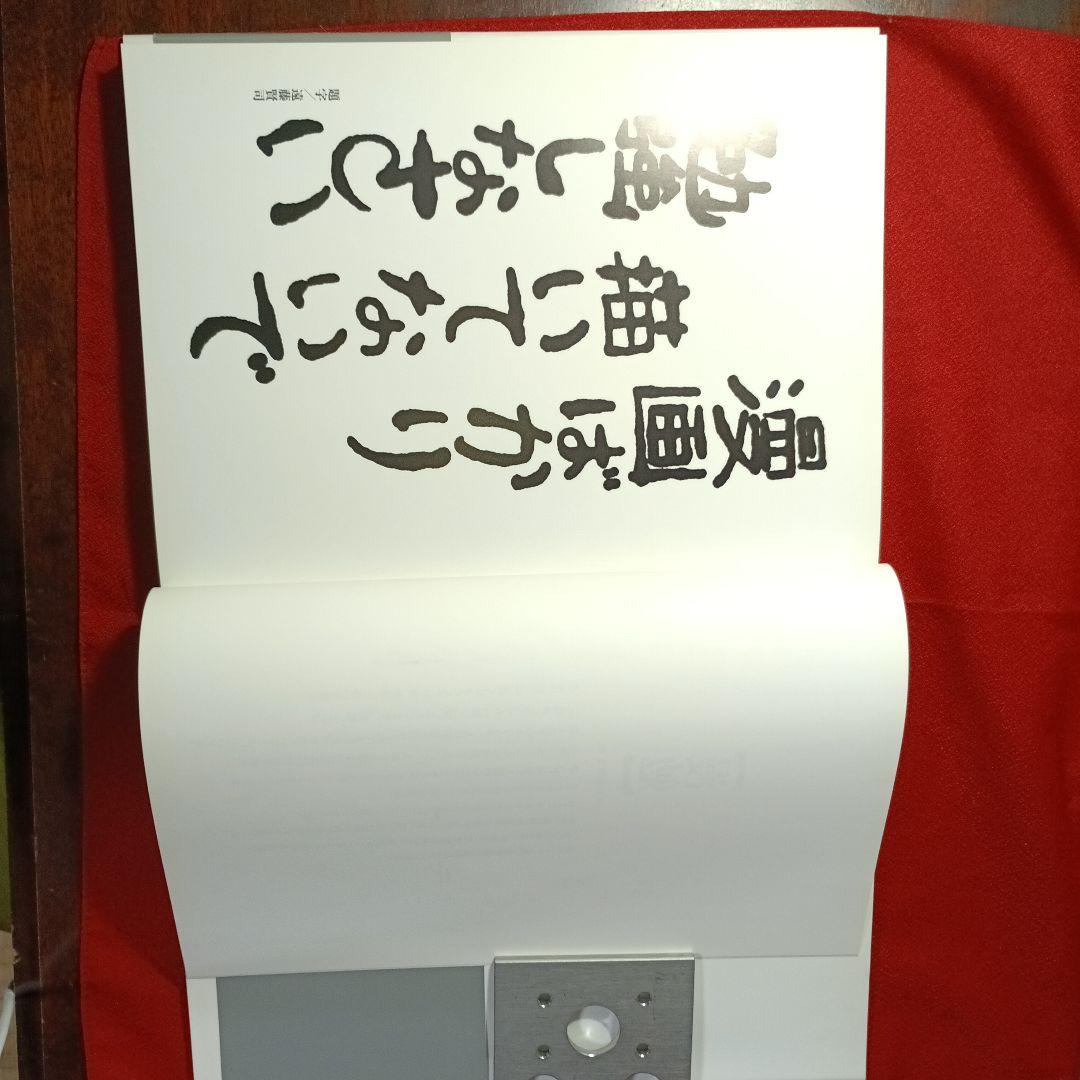 漫画ばかり
描いてないで
勉強しなさい
題字／遠藤賢司